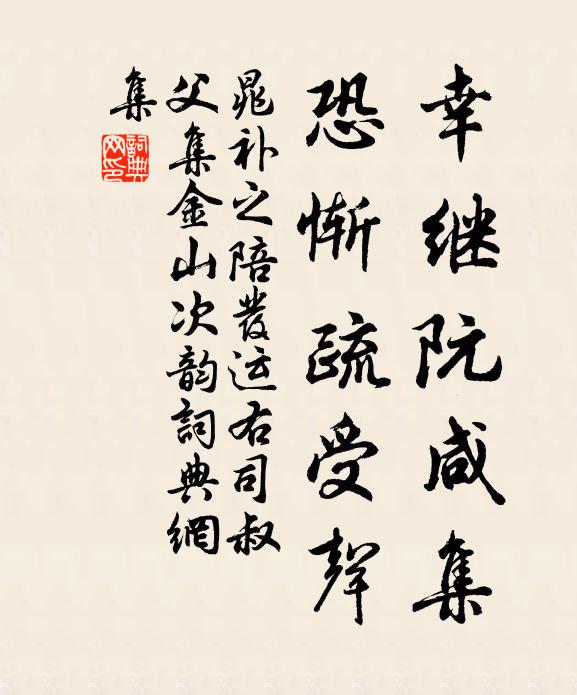 幸继阮咸集
恐惭疏受聲
晁补之陪發运右司叔
父集金山次韵詞典網
集
詞典网印